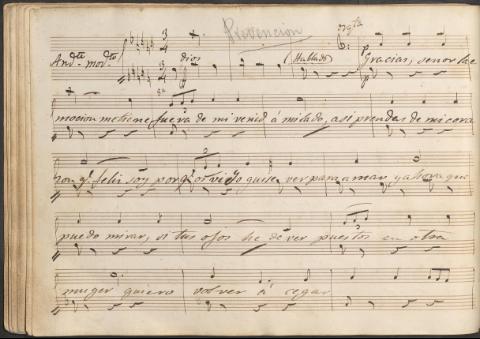 Prevencion
And.te mod.to dios Hablado Gracias, señor he
mocion me tiene fuera de mi venid á mi lado, asi prendas de mi cora
zon q.e feliz soy porq.e os vi Yo quise ver para amar y ahora que
puedo mirar, si tus ojos he de ver puestos en otra
muger quiero volver á cegar